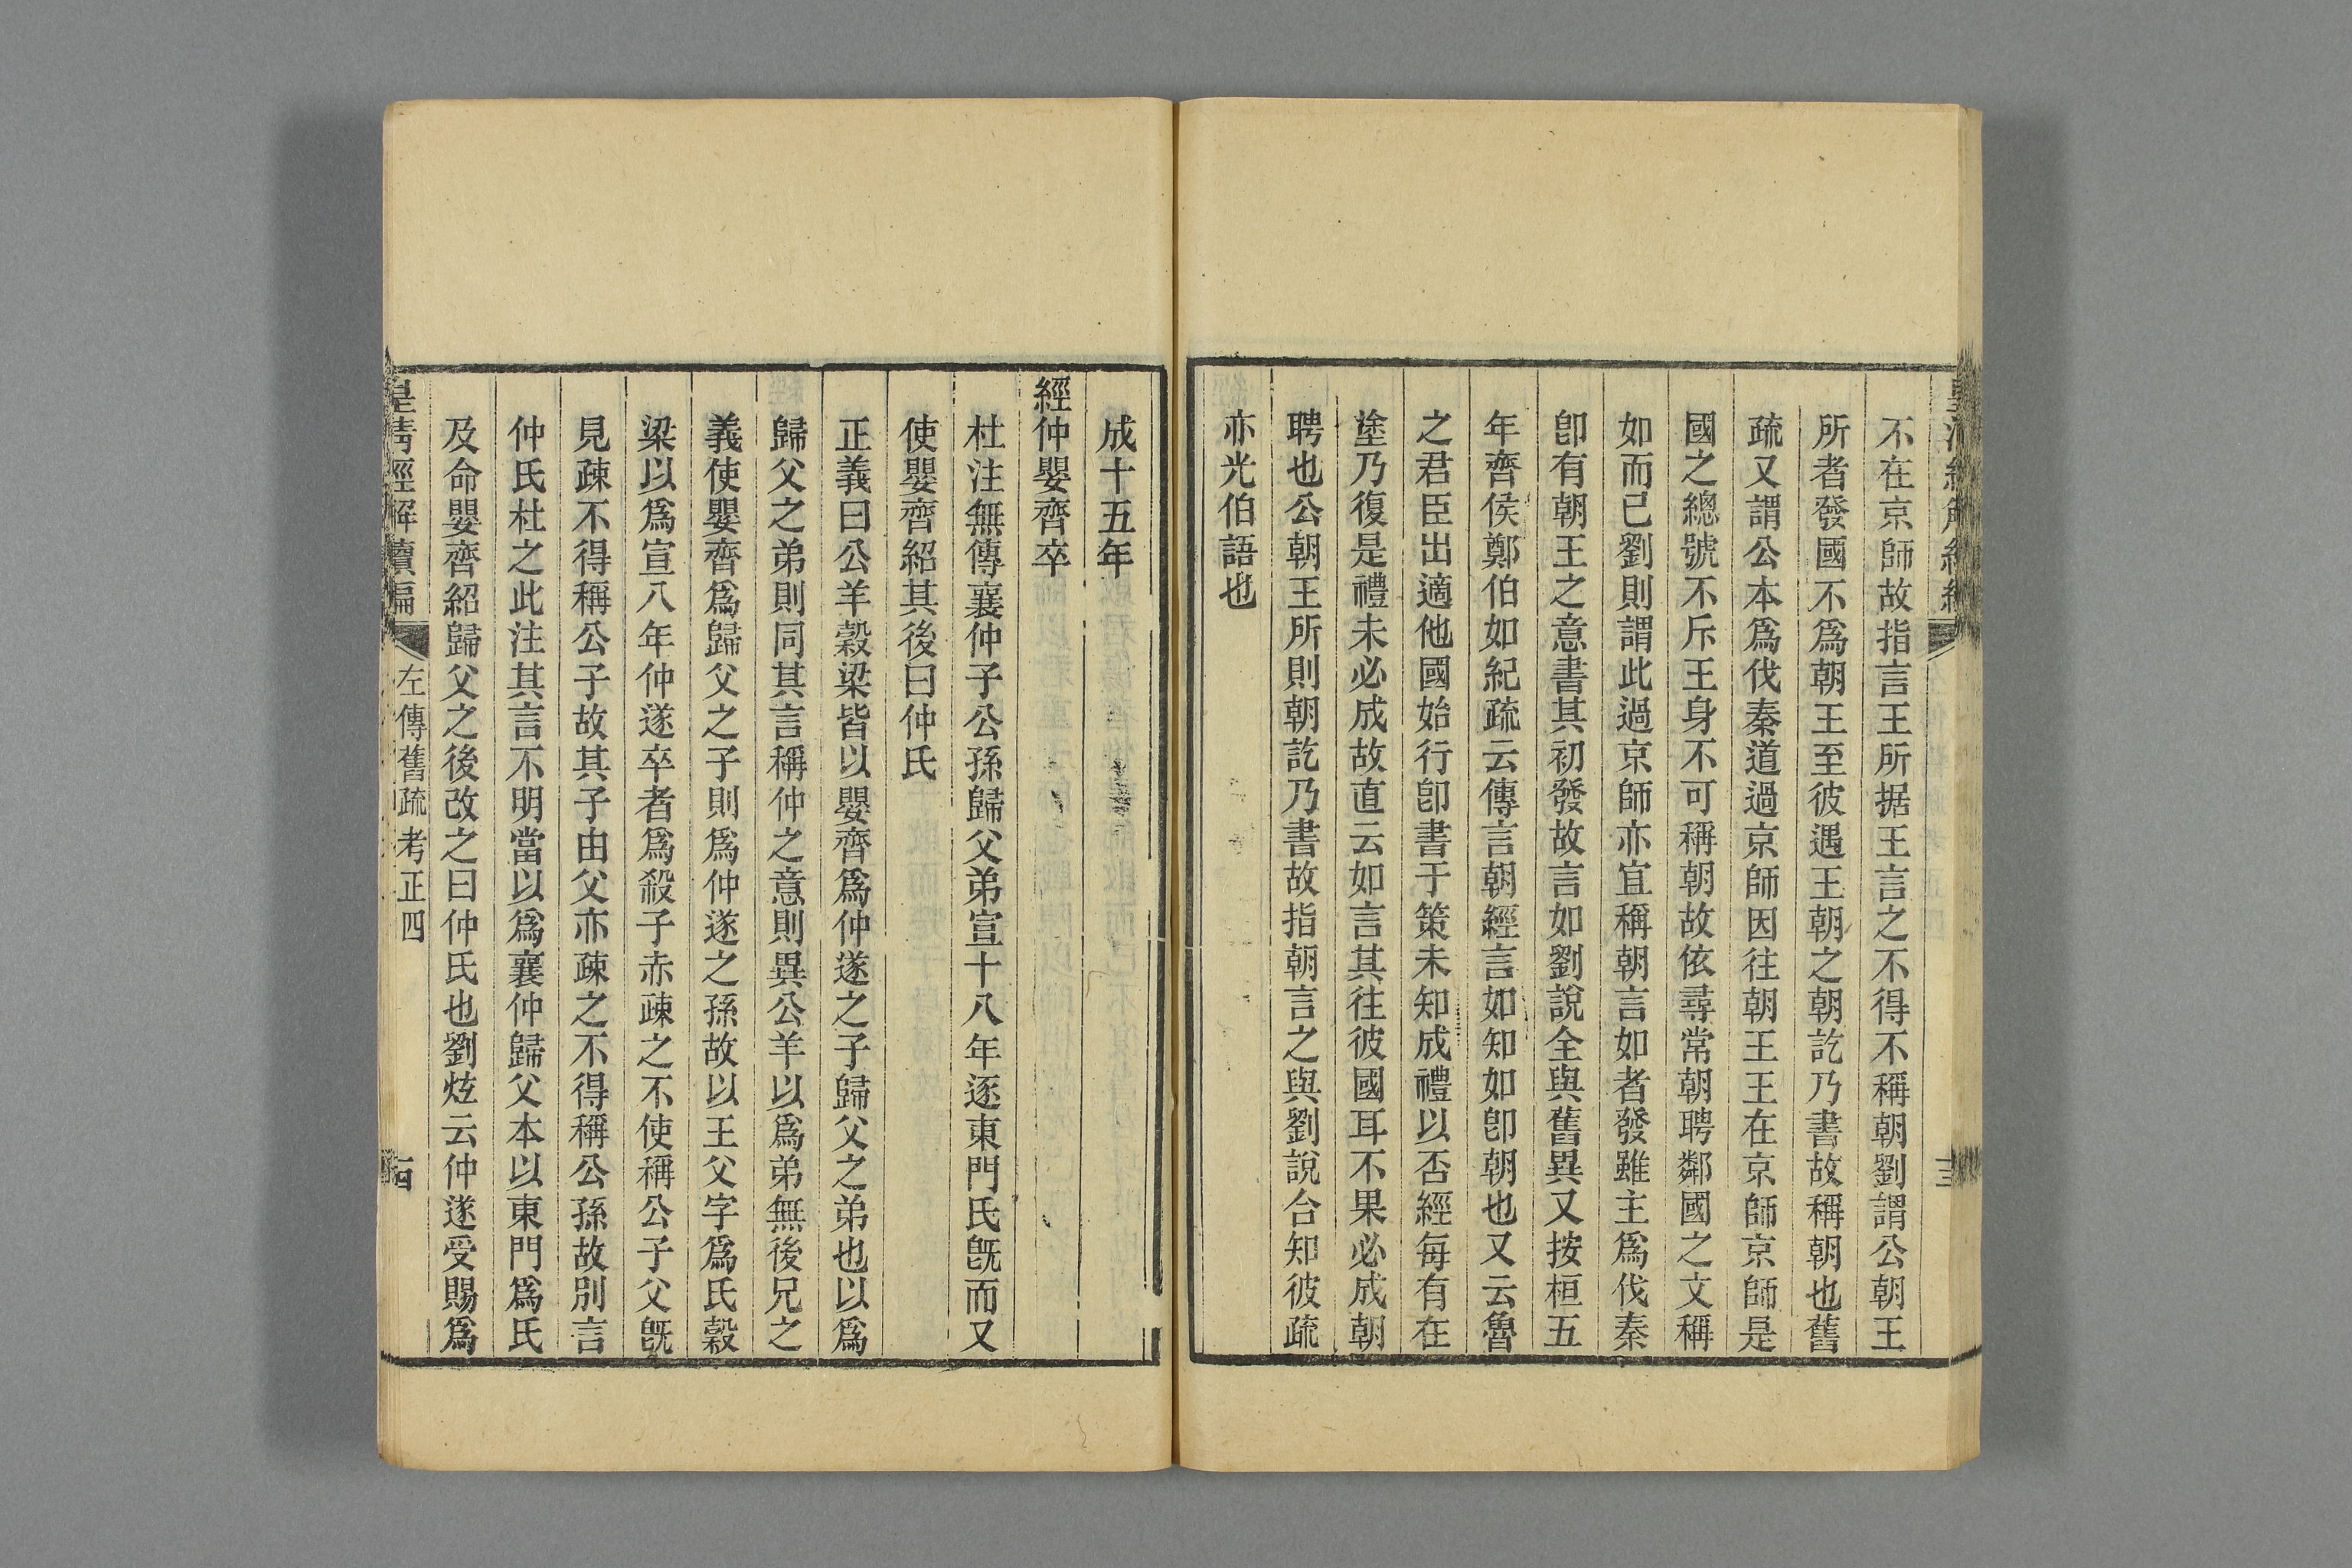 不在京師故指言王所据王言之不得不稱朝劉謂公朝王
所者發國不爲朝王至彼遇王朝之朝訖乃書故稱朝也舊
疏又謂公本爲伐秦道過京師因往朝王王在京師京師是
國之總號不斥王身不可稱朝故依尋常朝聘鄰國之文稱
如而已劉則謂此過京師亦宜稱朝言如者發雖主爲伐秦
卽有朝王之意書其初發故言如劉說全與舊異又按桓五
年齊侯鄭伯如紀疏云傳言朝經言如知如卽朝也又云魯
之君臣出適他國始行卽書于策未知成禮以否經每有在
塗乃復是禮未必成故直云如言其往彼國耳不果必成朝
聘也公朝王所則朝訖乃書故指朝言之與劉說合知彼疏
亦光伯語也
成十五年
經仲嬰齊卒
杜注無傳襄仲子公孫歸父弟宣十八年逐東門氏旣而又
使嬰齊紹其後曰仲氏
正義曰公羊穀梁皆以嬰齊爲仲遂之子歸父之弟也以爲
歸父之弟則同其言稱仲之意則異公羊以爲弟無後兄之
義使嬰齊爲歸父之子則爲仲遂之孫故以王父字爲氏穀
梁以爲宣八年仲遂卒者爲殺子赤疎之不使稱公子父旣
見疎不得稱公子故其子由父亦疎之不得稱公孫故別言
仲氏杜之此注其言不明當以爲襄仲歸父本以東門爲氏
及命嬰齊紹歸父之後改之曰仲氏也劉炫云仲遂受賜爲
皇清經解續編
左傳舊疏考正四